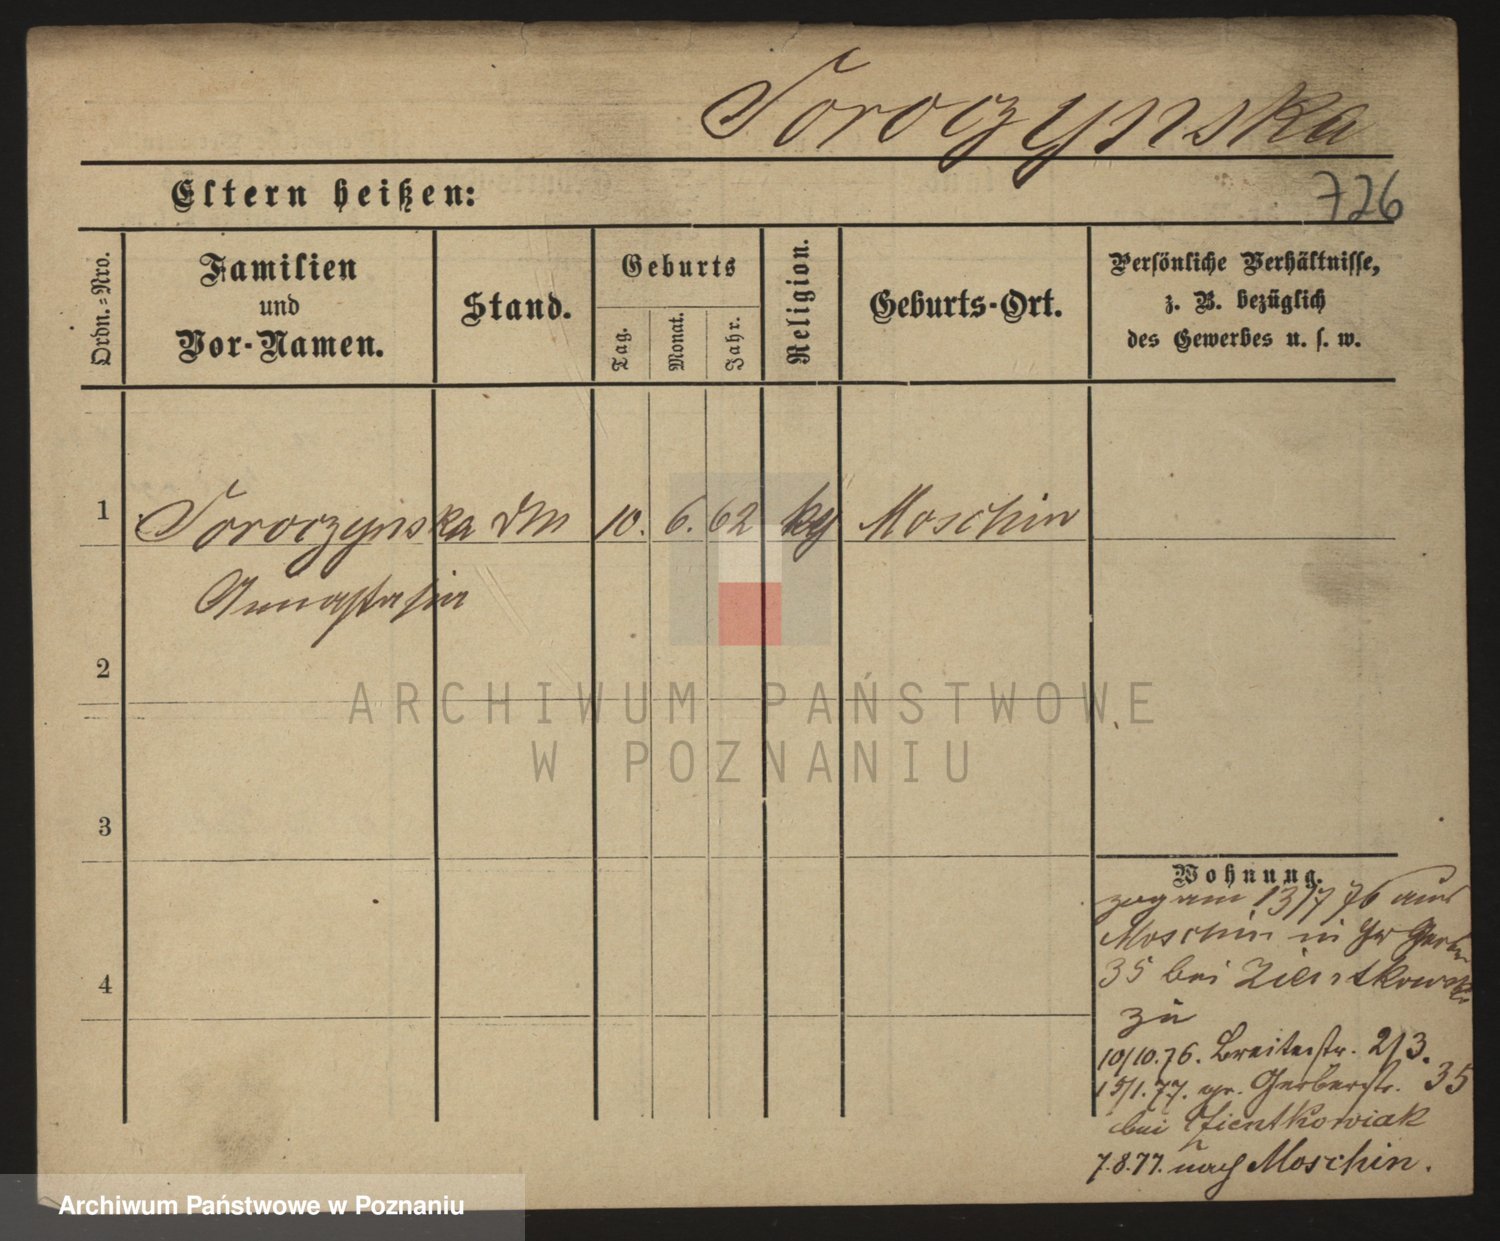 Soroczynska
Eltern heißen:
726
Ordn.=Nro.
Familien
und
Vor-Namen.
Stand.
Geburts
Tag.
Monat.
Jahr.
Religion.
Geburts-Ort.
Persönliche Verhältnisse,
z. B. bezüglich
des Gewerbes u. s. w.
1 Soroczynska 10. 6. 62 Moschin
Annastasia
2
ARCHIWUM PAŃSTWOWE
W POZNANIU
3
4
Wohnung.
zog am 13/7 76 aus
Moschin in Gr Gerber
35 bei Zientkowski
zu
10/10.76. Breitestr. 213.
15/1.77. gr. Gerberstr. 35
bei Zientkowiak
7.8.77. nach Moschin.
Archiwum Państwowe w Poznaniu